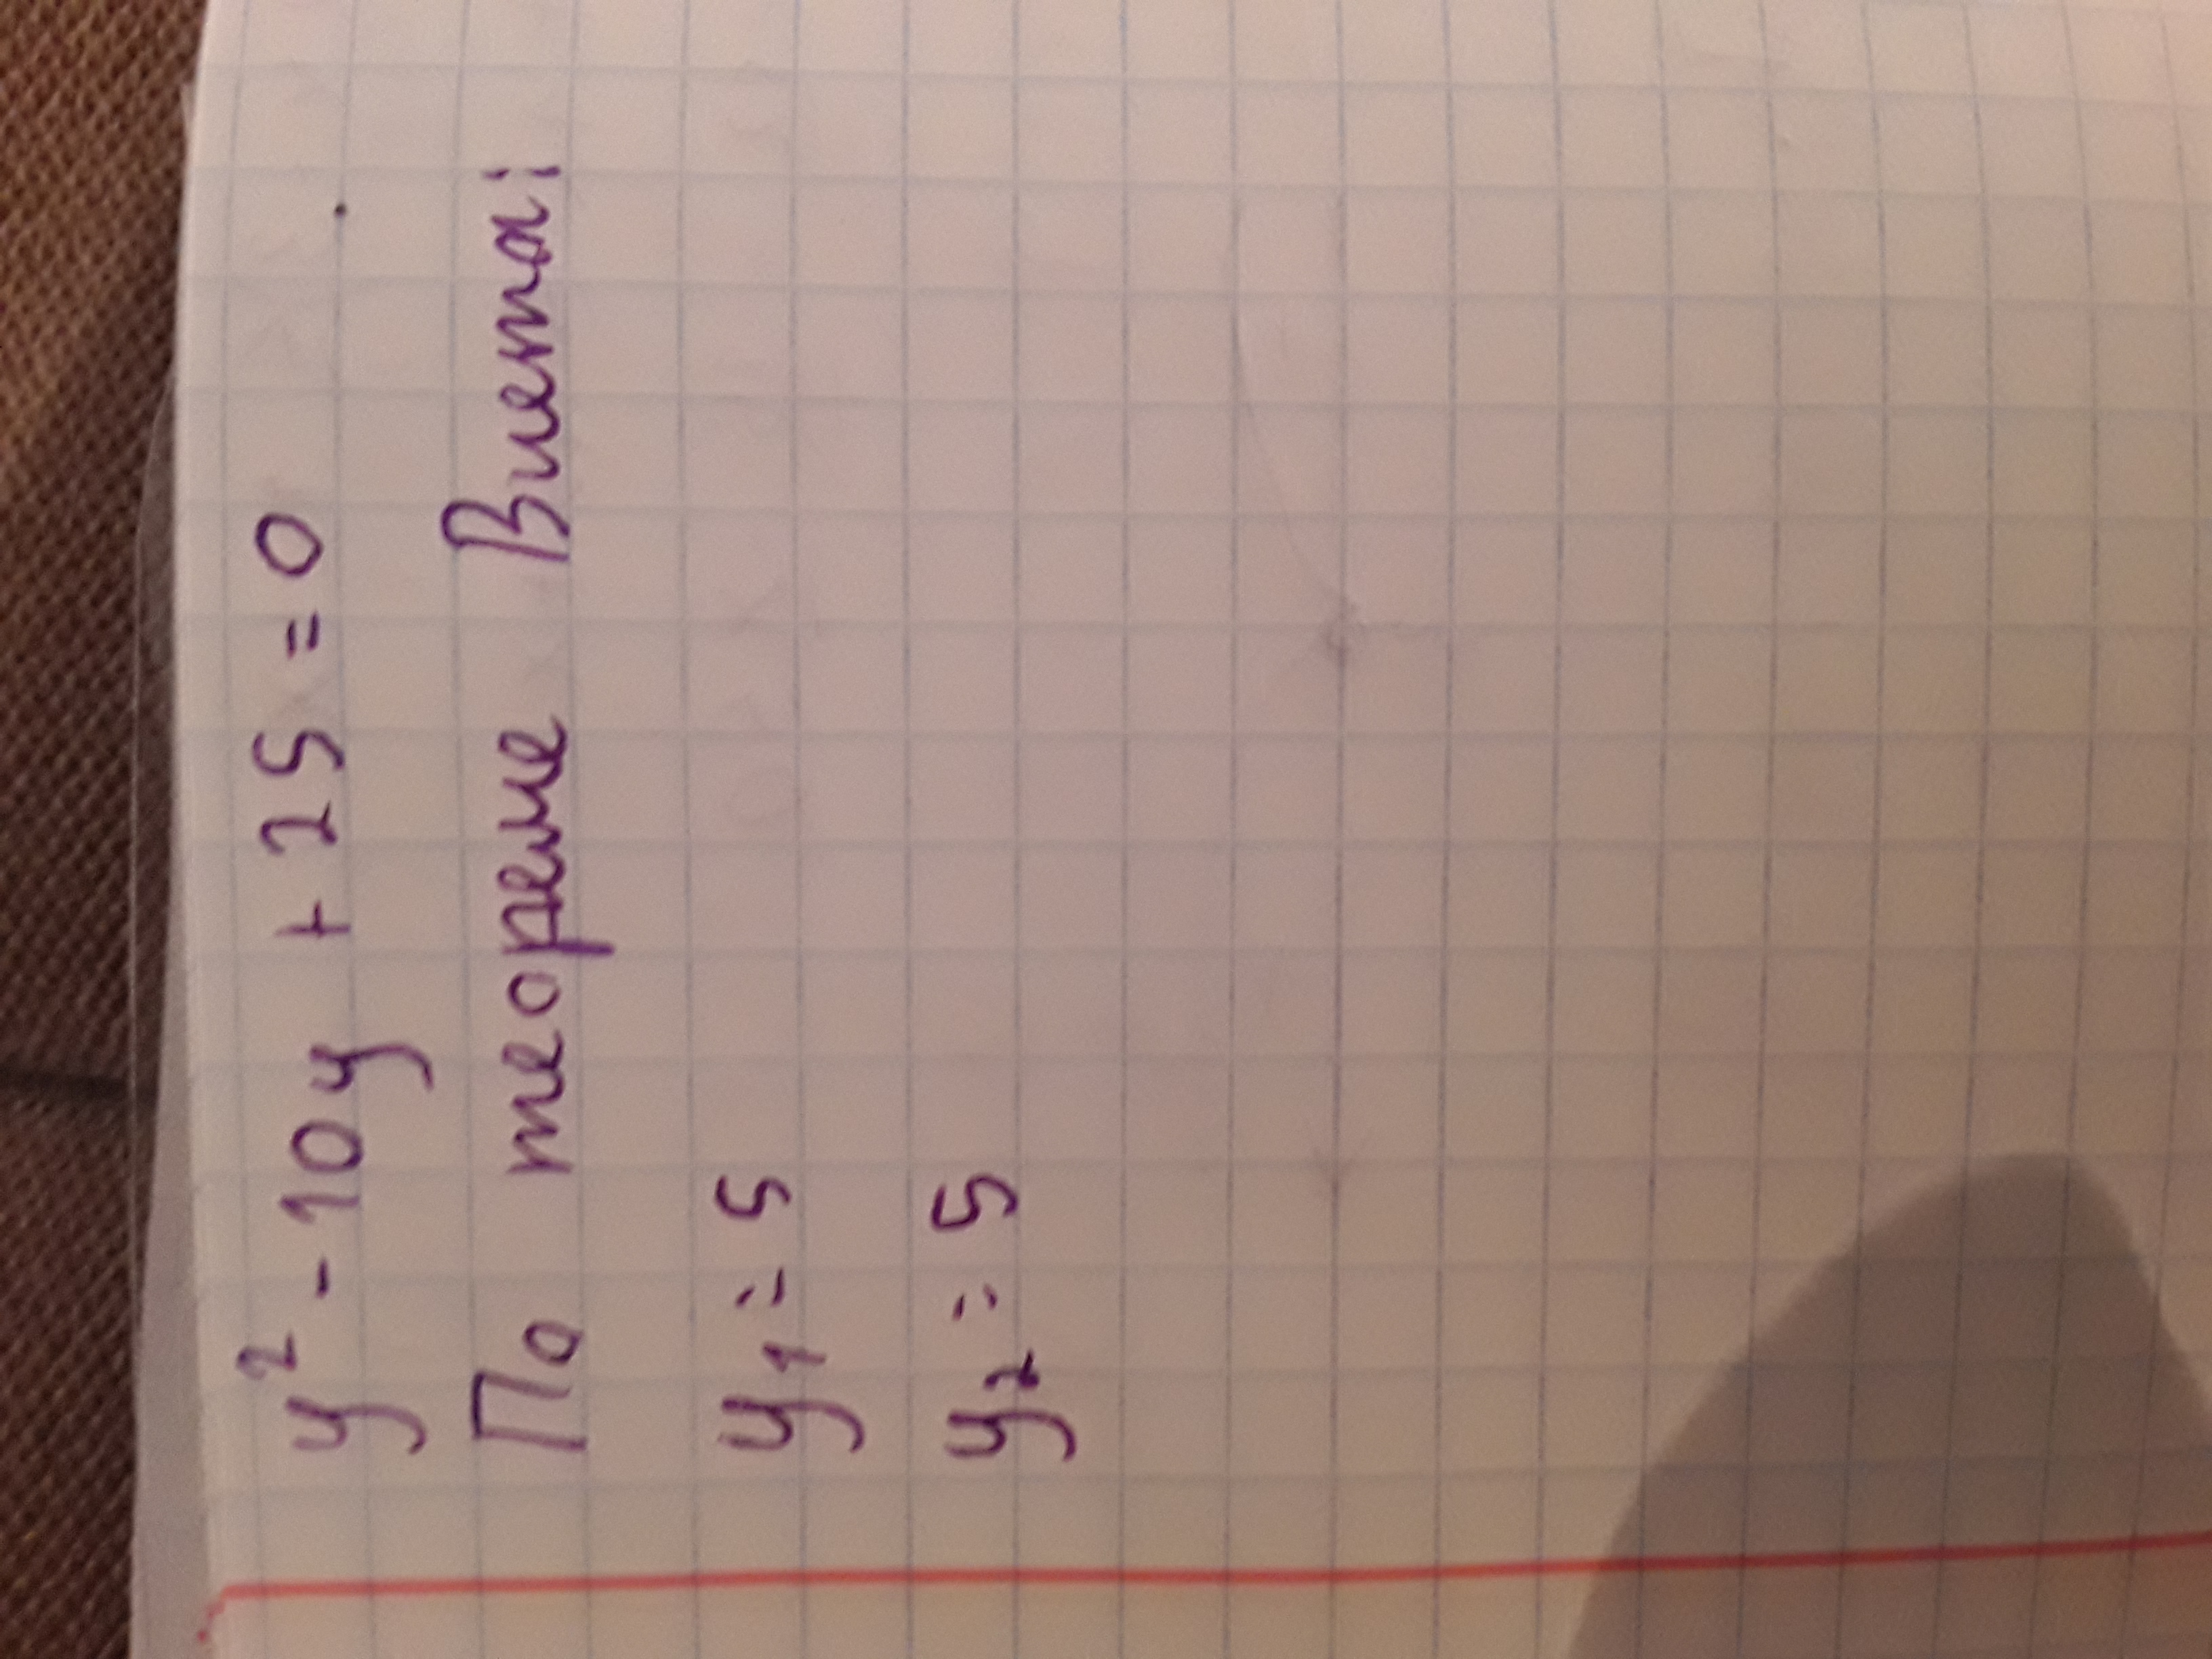 y² - 10y + 25 = 0
По теореме Виета:
y₁ = 5
y₂ = 5